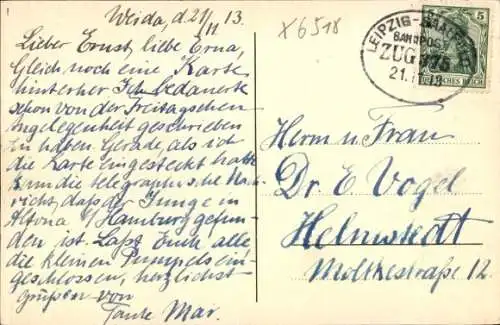 Weida, d 21/11 13.
Lieber Ernst, liebe Erna,
Gleich noch eine Karte
hinterher. Ich bedauerte
schon von der Freitagschen
Angelegenheit geschrieben
zu haben. Gerade, als ich
die Karte eingesteckt hatte
kam die telegraphische Nach-
richt, daß der Junge in
Altona b/ Hamburg gefun-
den ist. Laßt Euch alle
die kleinen Pumpels ein-
geschlossen, herzlichst
grüßen von
Tante Mar.
X6518
LEIPZIG-
BAHNPOST
ZUG 375
21.11.13
5
DEUTSCHES REICH
Herrn u Frau
Dr. E Vogel
Helmstedt
Moltkestraße 12.